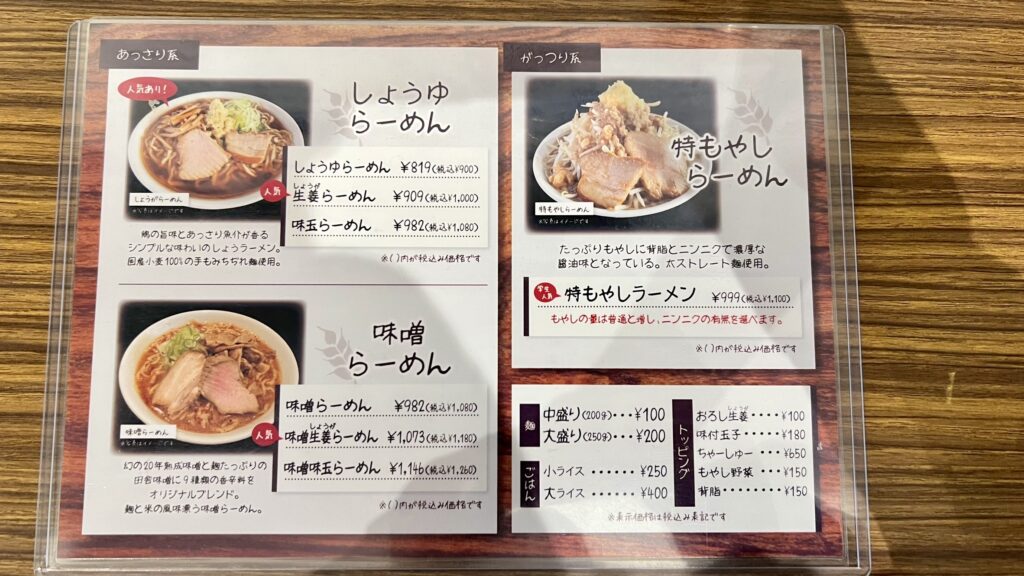 あっさり系
人気あり!
しょうゆ
らーめん
しょうがらーめん
※写真はイメージです
しょうゆらーめん ¥819(税込¥900)
人気
しょうが
生姜らーめん ¥909(税込¥1,000)
味玉らーめん ¥982(税込¥1,080)
※( )内が税込み価格です
鶏の旨味とあっさり魚介が香る
シンプルな味わいのしょうラーメン。
国産小麦100%の手もみちぢれ麺使用。
味噌
らーめん
味噌らーめん
※写真はイメージです
味噌らーめん ¥982(税込¥1,080)
人気
しょうが
味噌生姜らーめん ¥1,073(税込¥1,180)
味噌味玉らーめん ¥1,146(税込¥1,260)
※( )内が税込み価格です
幻の20年熟成味噌と麹たっぷりの
田舎味噌に9種類の香辛料を
オリジナルブレンド。
麹と米の風味薫う味噌らーめん。
がっつり系
特もやし
らーめん
特もやしらーめん
※写真はイメージです
たっぷりもやしに背脂とニンニクで濃厚な
醤油味となっている。太ストレート麺使用。
学生
人気
特もやしラーメン ¥999(税込¥1,100)
もやしの量は普通と増し、ニンニクの有無を選べます。
※( )内が税込み価格です
麺
中盛り(200g)・・・¥100
大盛り(250g)・・・¥200
ごはん
小ライス ・・・・・¥250
大ライス ・・・・・¥400
トッピング
しょうが
おろし生姜 ・・・・¥100
味付玉子 ・・・・・¥180
ちゃーしゅー ・・・¥650
もやし野菜 ・・・・¥150
背脂 ・・・・・・・¥150
※表示価格は税込み表記です